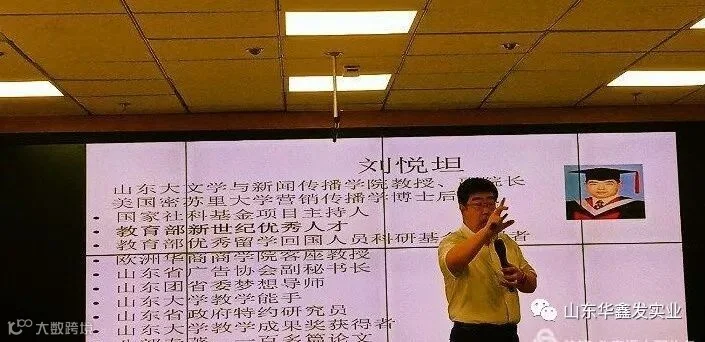 刘悦坦
山东大文学与新闻传播学院教授、 院长
美国密苏里大学营销传播学博士后
• 国家社科基金项目主持人
• 教育部新世纪优秀人才
• 教育部优秀留学回国人员科研基 者
欧洲华商商学院客座教授
• 山东省广告协会副秘书长
• 山东团省委梦想导师
• 山东大学教学能手
• 山东省政府特约研究员
• 山东大学教学成果奖获得者
一百多篇论文
大数跨境
山东华鑫发实业